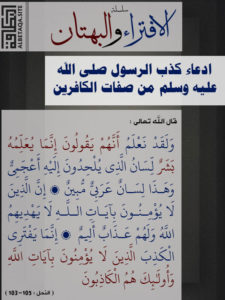 سلسلة
الافتراء والبهتان
البطاقة
ALBETAQA.SITE
ادعاء كذب الرسول صلى الله
عليه وسلم من صفات الكافرين
قال الله تعالى :
وَلَقَدْ نَعْلَمُ أَنَّهُمْ يَقُولُونَ إِنَّمَا يُعَلِّمُهُ
بَشَرٌ لِسَانُ الَّذِي يُلْحِدُونَ إِلَيْهِ أَعْجَمِيٌّ
وَهَذَا لِسَانٌ عَرَبِيٌّ مُبِينٌ ۞ إِنَّ الَّذِينَ
لَا يُؤْمِنُونَ بِآيَاتِ اللَّهِ لَا يَهْدِيهِمُ
اللَّهُ وَلَهُمْ عَذَابٌ أَلِيمٌ ۞ إِنَّمَا يَفْتَرِي
الْكَذِبَ الَّذِينَ لَا يُؤْمِنُونَ بِآيَاتِ اللَّهِ
وَأُولَٰئِكَ هُمُ الْكَاذِبُونَ
( النحل : 105 - 103 )